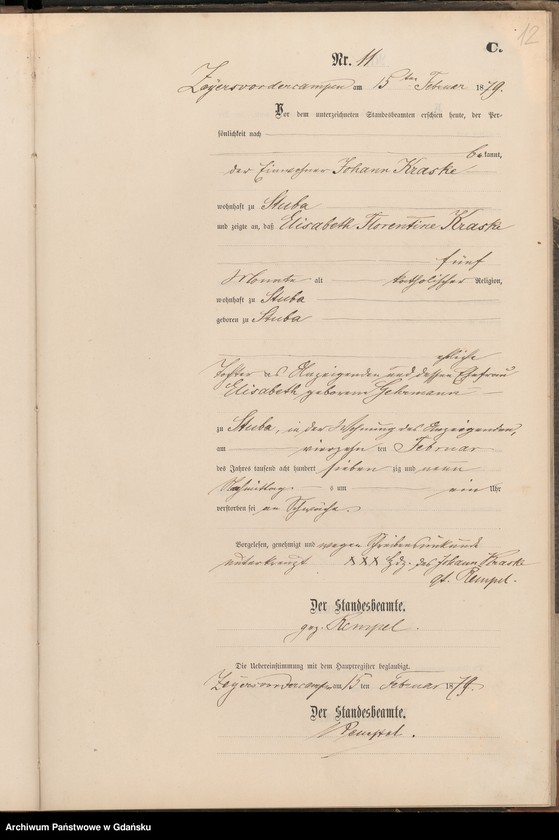 12
C.
Nr. 11
Zeyersvordercampen am 15ten Februar 1879.
Vor dem unterzeichneten Standesbeamten erschien heute, der Per-
sönlichkeit nach
bekannt,
der Einwohner Johann Kraske
wohnhaft zu Stuba
und zeigte an, daß Elisabeth Florentine Kraske
fünf
Monate alt katholischer Religion,
wohnhaft zu Stuba
geboren zu Stuba
eheliche
Tochter des Anzeigenden und dessen Ehefrau
Elisabeth geborene Gehrmann
zu Stuba, in der Wohnung des Anzeigenden,
am vierzehn ten Februar
des Jahres tausend acht hundert sieben zig und neun
Nachmittags um ein Uhr
verstorben sei an Schwäche.
Vorgelesen, genehmigt und wegen Schreibensunkunde
unterkreuzt XXX Hdz. des Johann Kraske
gt. Rempel.
Der Standesbeamte.
gez. Rempel.
Die Uebereinstimmung mit dem Hauptregister beglaubigt.
Zeyersvordercampen am 15 ten Februar 1879.
Der Standesbeamte.
Rempel.
Archiwum Państwowe w Gdańsku